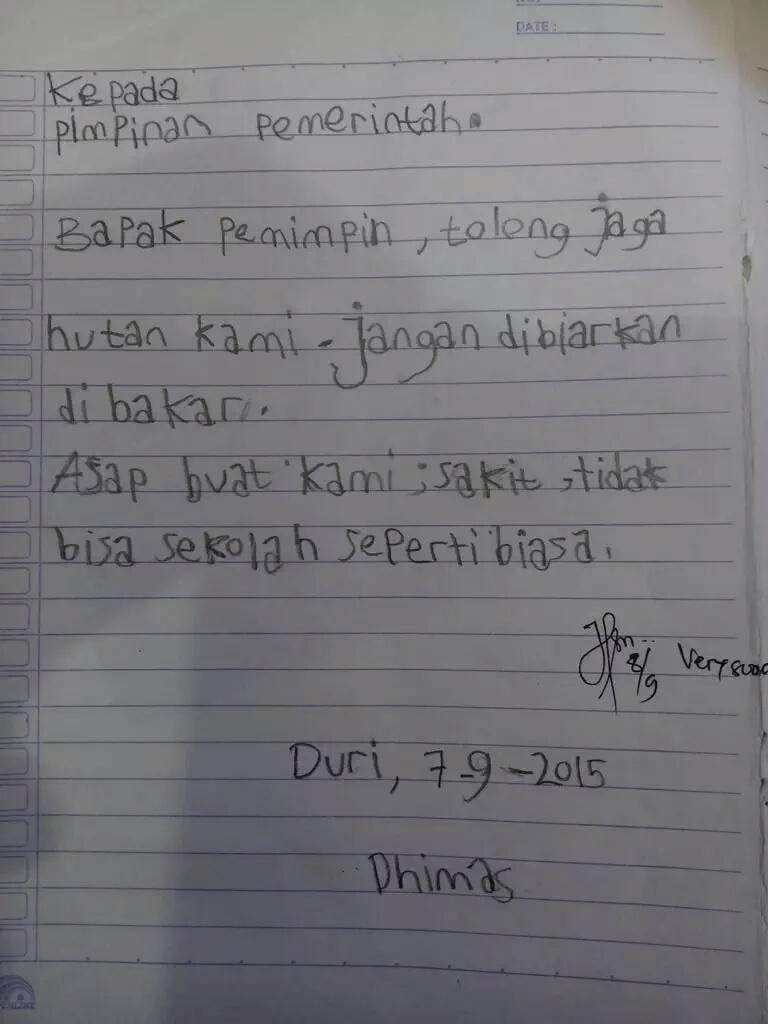 DATE :
Kepada
Pimpinan pemerintah.
Bapak pemimpin, tolong jaga
hutan kami. jangan dibiarkan
di bakar.
Asap buat kami ; sakit, tidak
bisa sekolah seperti biasa.
8/9 Very
Duri, 7-9-2015
Dhimas